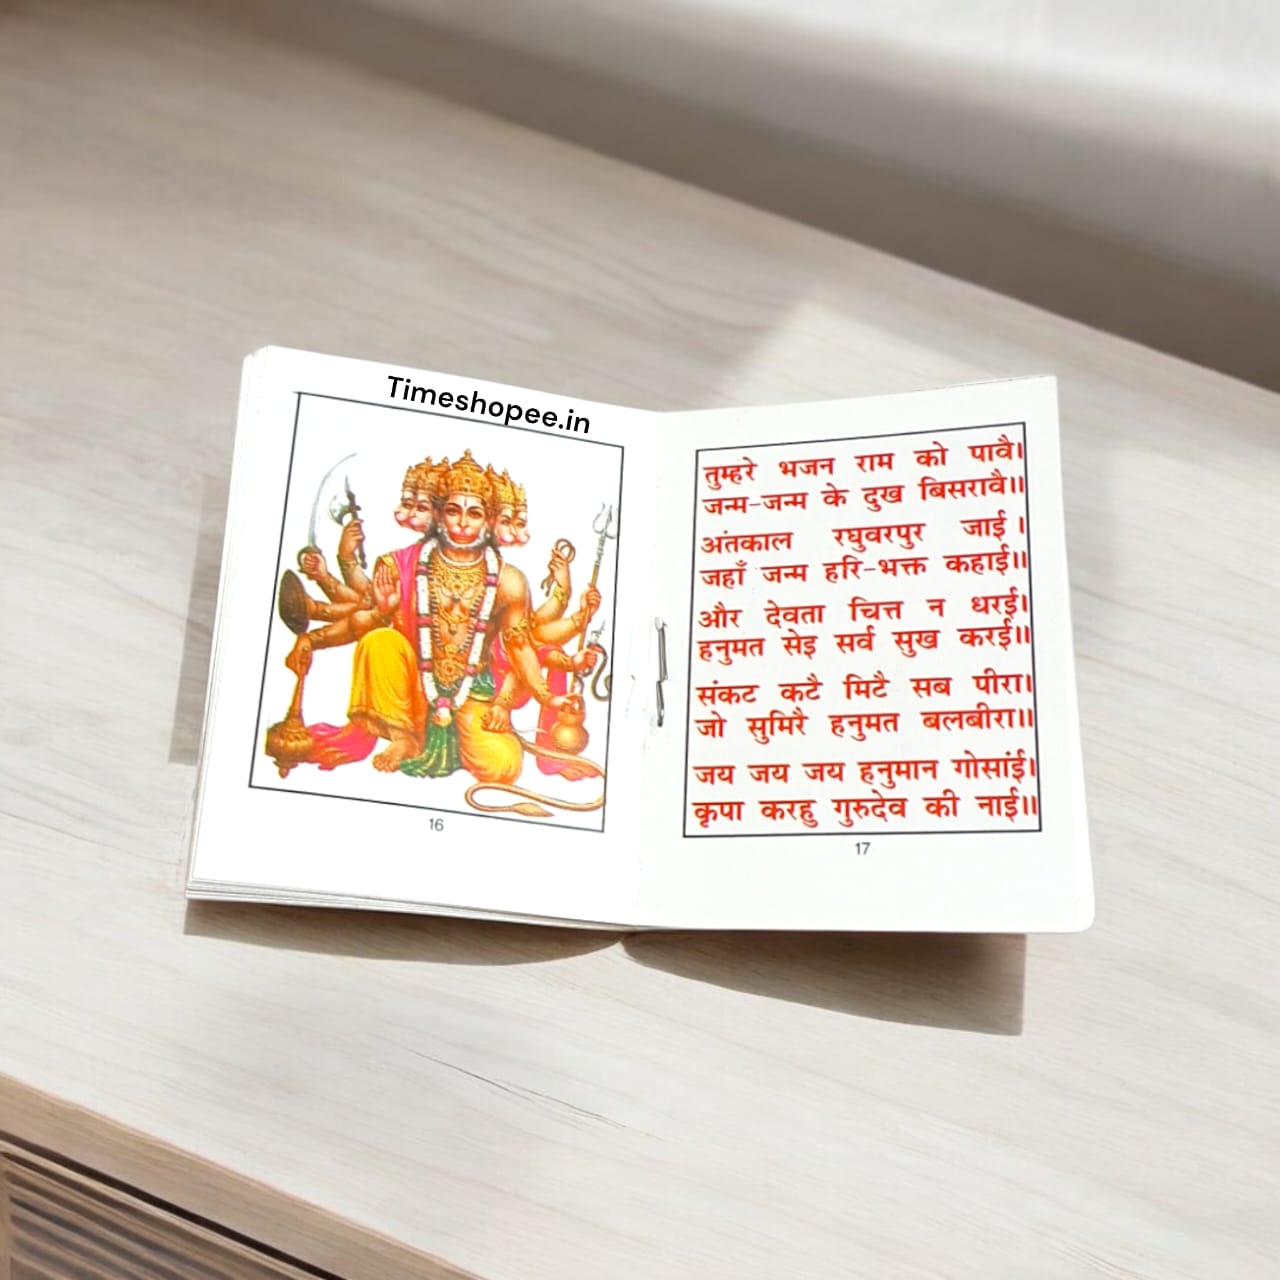 Timeshopee.in
16
तुम्हरे भजन राम को पावै।
जन्म-जन्म के दुख बिसरावै॥
अंतकाल रघुवरपुर जाई।
जहाँ जन्म हरि-भक्त कहाई॥
और देवता चित्त न धरई।
हनुमत सेइ सर्व सुख करई॥
संकट कटै मिटै सब पीरा।
जो सुमिरै हनुमत बलबीरा॥
जय जय जय हनुमान गोसांई।
कृपा करहु गुरुदेव की नाई॥
17